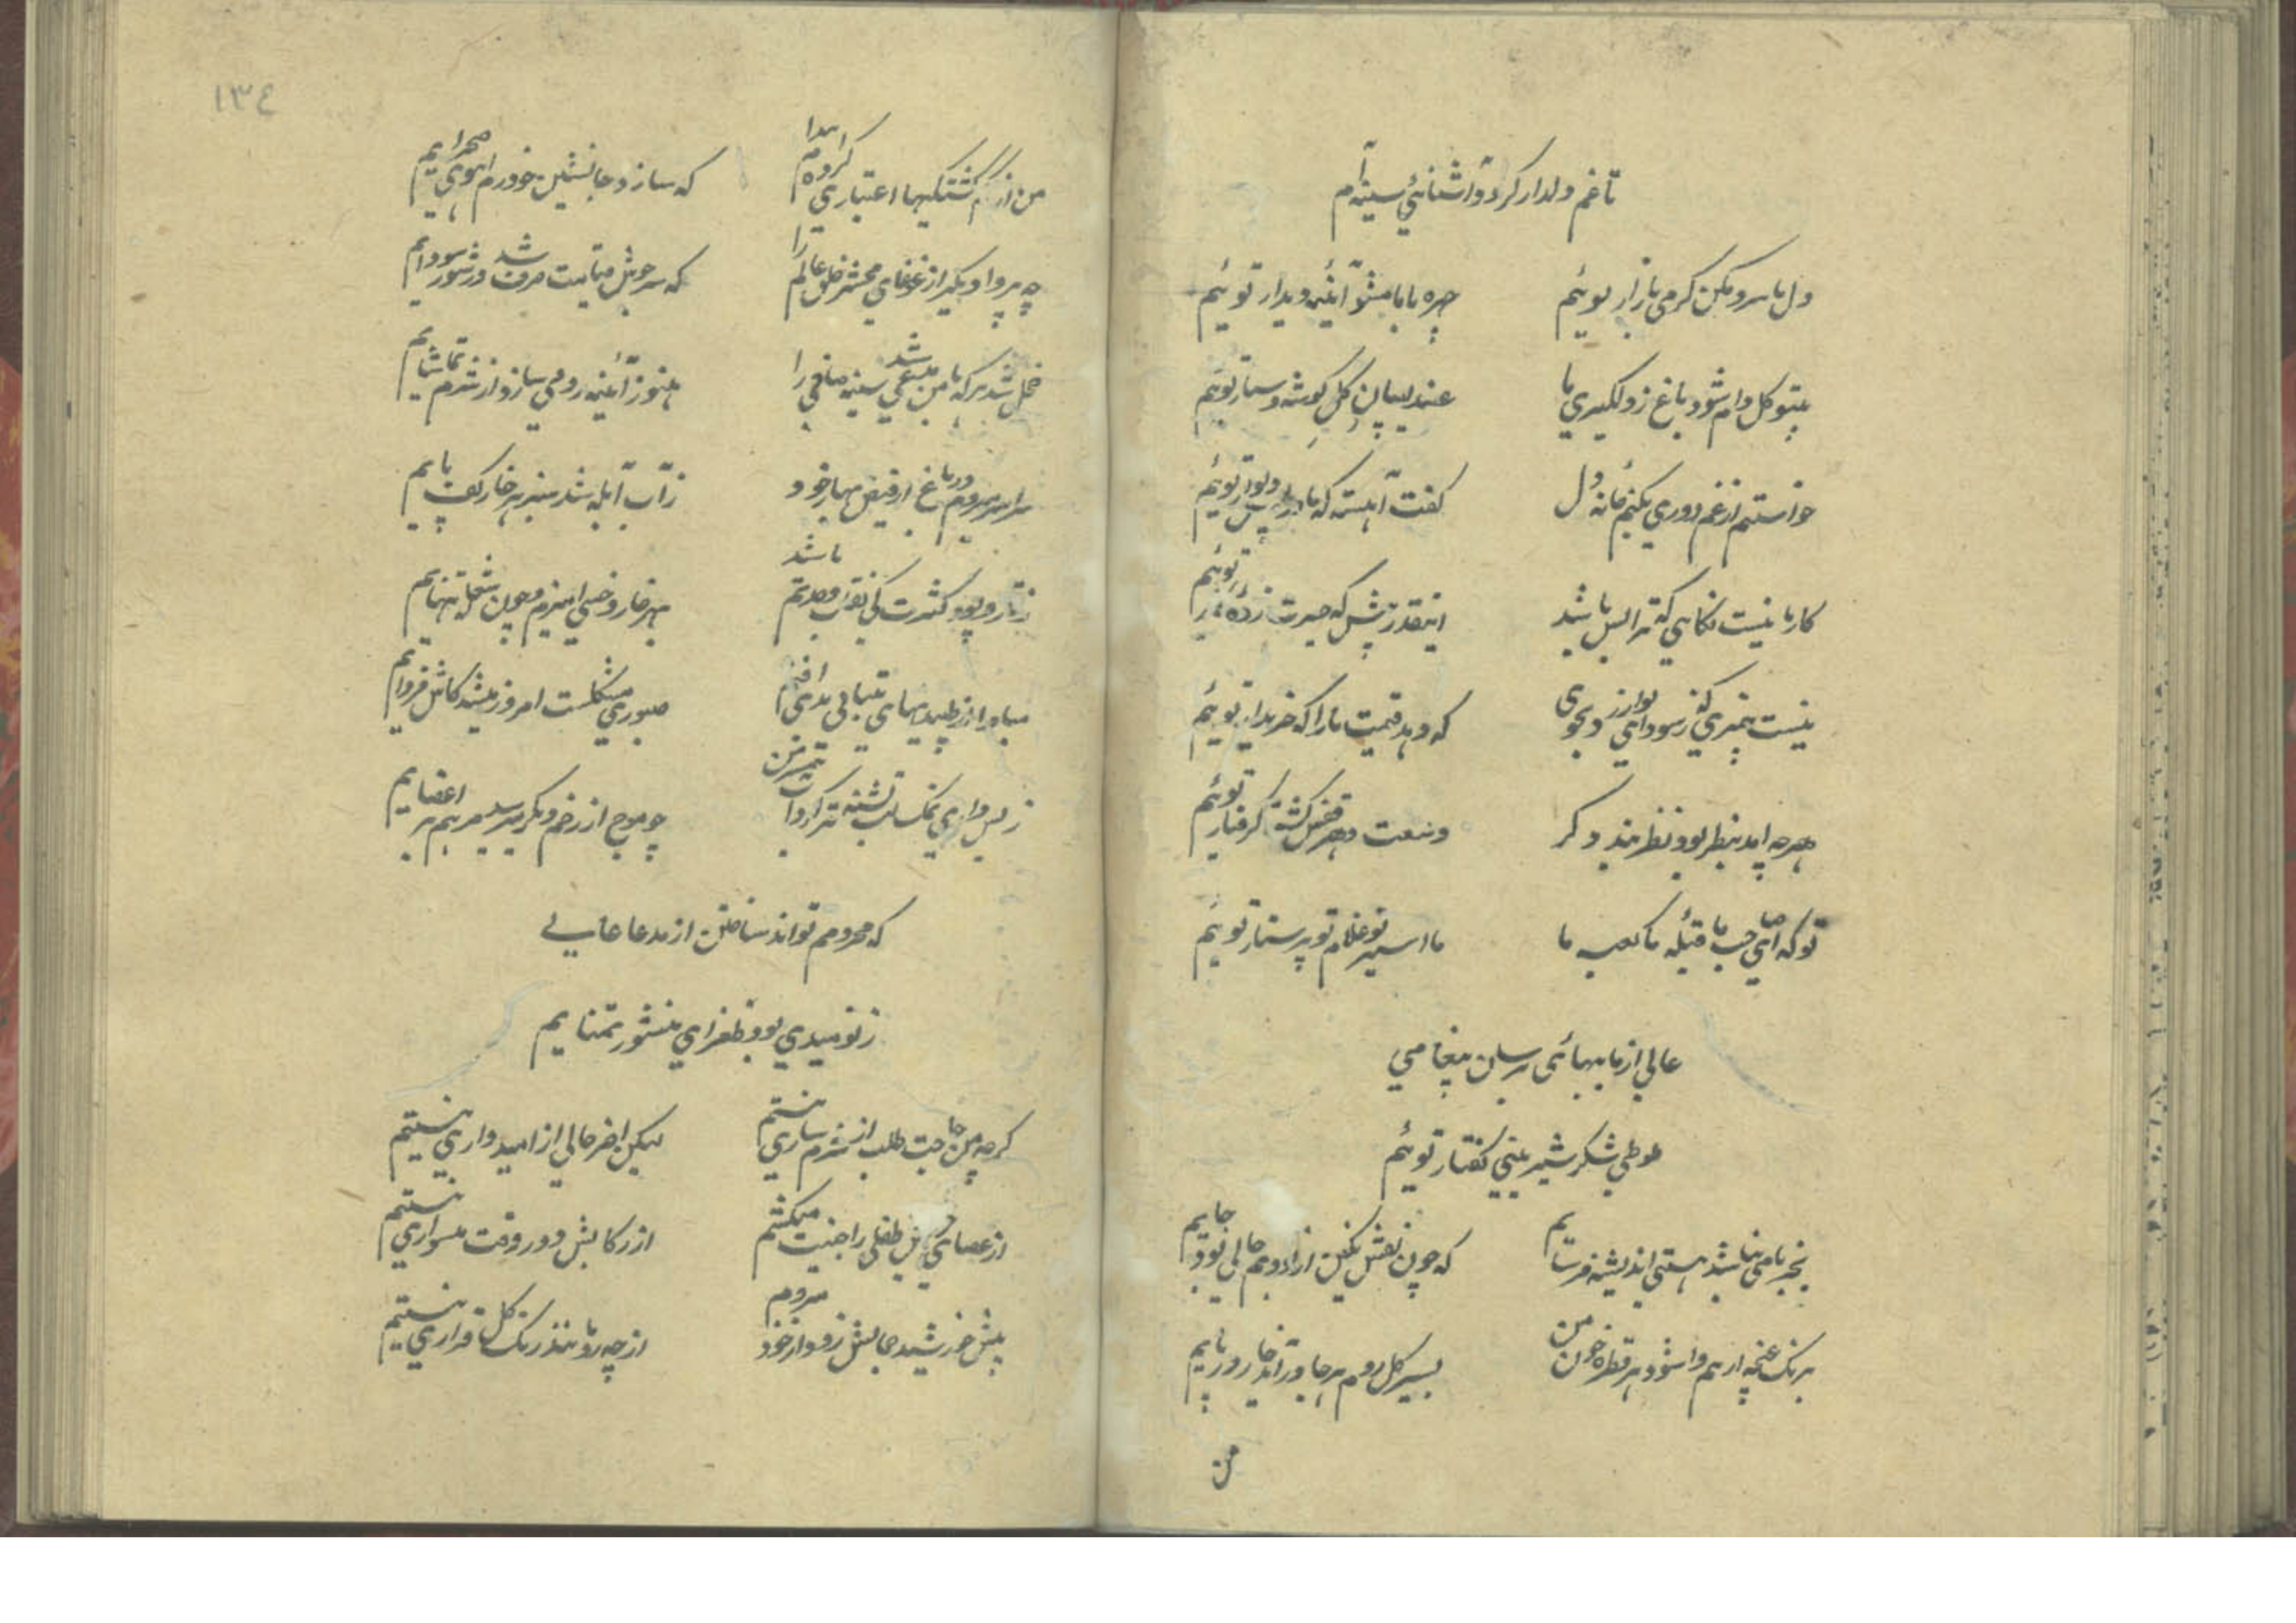 تا غم دلدار کرد و آشنائی سینه‌ام
دل ما سرد مکن گرمی بازار توئیم
چهره با ما مشو آئینه دیدار توئیم
بیتو گل وا نشود باغ ز دلگیری ما
عندلیبان گل گوشه دستار توئیم
خواستم از غم دوری بکنم خانه دل
گفت آهسته که ما در پس دیوار توئیم
کار ما نیست نگاهی که ترا بس باشد
اینقدر بس که حیرت زده
نیست
که دهد قیمت ما را که خریدار توئیم
هرچه آمد بنظر بود نظربند دگر
وسعت دهر قفس گشته گرفتار توئیم
تو که صاحب ما قبله ما کعبه ما
ما اسیر تو غلام تو پرستار توئیم
عالی از ما برسان پیغامی
طوطی شکر شیرینی گفتار توئیم
بجز نامی نباشد هستی اندیشه فرسایم
که چون نقش نگین از خود بود خالی جایم
برنگ غنچه از هم وا شود هر قطره خون من
بسیر گل روم هرجا در آید خار در پایم
من
١٣٤
من از گم گشتگیها اعتباری کرده‌ام پیدا
که سازد جانشین خود رم آهوی صحرایم
چه پروا دیگر از غوغای محشر خلق عالم را
که سرجوش قیامت صرف شد در شور سودایم
خجل شد هر که با من مدعی شد سینه صافی را
هنوز آئینه رو می‌سازد از شرم تماشایم
سراسر میروم در باغ از فیض بهار خود
ز آب آبله شد سبز هر خار کف پایم
ز تار و پود کثرت کی نقاب وحدتم باشد
بهر خار و خسی آمیزم و چون شعله تنهایم
مبادا از طپیدنهای بیتابی بدام افتم
صبوری مشکلست امروز میشد کاش فردایم
ز بس داری نمک لب تشنه تر کردی
چو موج از زخم دیگر میرسد مرهم بر اعضایم
که محرومم تواند ساختن از مدعا عالی
ز نومیدی بود طغرای منشور تمنایم
گرچه من حاجت طلب از شرمساری نیستم
لیکن آخر خالی از امیدواری نیستم
از عصای پیری طفلی را جنیبت میکشم
از رکابش دور وقت نی سواری نیستم
پیش خورشید جمالش زود از خود میروم
از چه رو مانند رنگ گل فراری نیستم